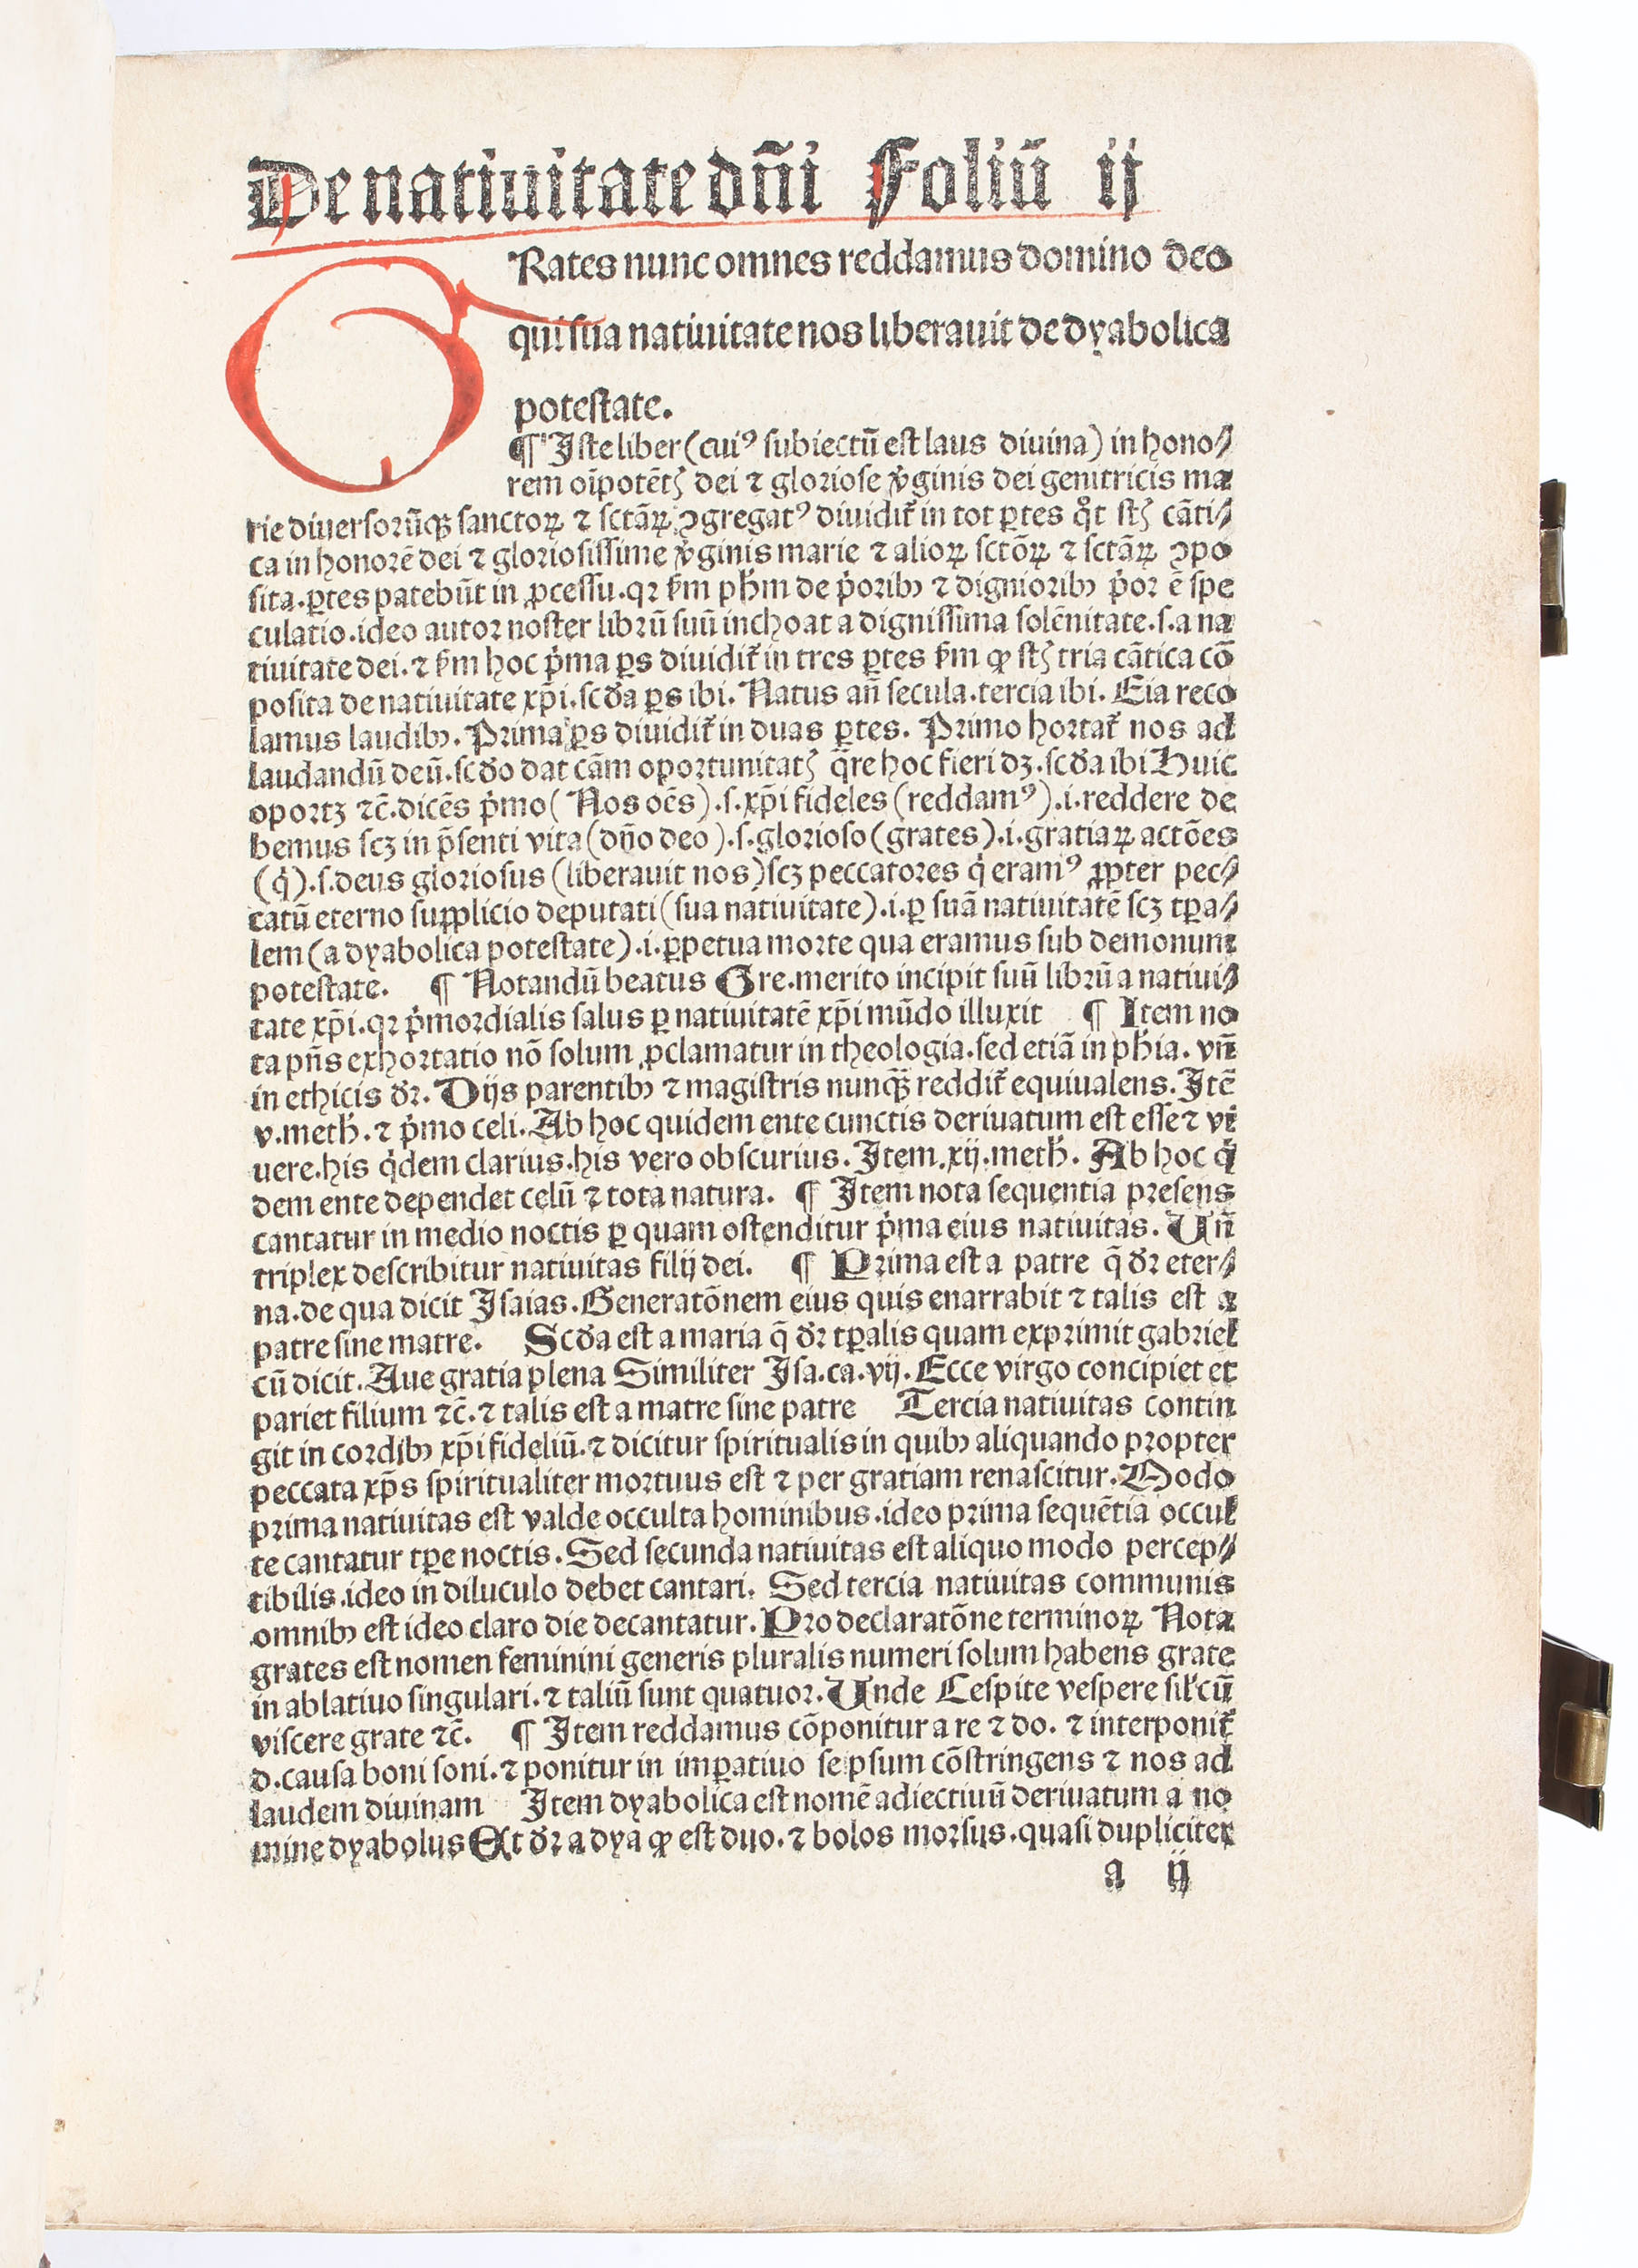 De natiuitate dñi Foliū ij
GRates nunc omnes reddamus domino deo
qui sua natiuitate nos liberauit de dyabolica
potestate.
¶ Iste liber (cuiꝰ subiectū est laus diuina) in hono⸗
rem oīpotētꝭ dei ⁊ gloriose v̓ginis dei genitricis ma
rie diuersorūqꝫ sanctoꝝ ⁊ sctāꝝ ꝯgregatꝰ diuidit᷑ in tot ꝑtes qͦt stꝭ cāti⸗
ca in honorē dei ⁊ gloriosissime v̓ginis marie ⁊ alioꝝ sctōꝝ ⁊ sctāꝝ ꝯpo
sita. ꝑtes patebūt in ꝓcessu. qꝛ ẜm pħm de p̓oribꝰ ⁊ dignioribꝰ p̓or ē spe
culatio. ideo autor noster librū suū inchoat a dignissima solēnitate. s. a na
tiuitate dei. ⁊ ẜm hoc p̓ma ꝑs diuidit᷑ in tres ꝑtes ẜm ꝙ stꝭ tria cātica cō
posita de natiuitate xp̄i. scd̓a ꝑs ibi. Natus añ secula. tercia ibi. Eia reco
lamus laudibꝰ. Prima ꝑs diuidit᷑ in duas ꝑtes. Primo hortat᷑ nos ad
laudandū deū. scd̓o dat cām oportunitatꝭ q̄re hoc fieri dꝫ. scd̓a ibi Huic
oportꝫ ⁊c̄. dicēs p̓mo (Nos oēs). s. xp̄i fideles (reddamꝰ). i. reddere de
bemus scꝫ in p̄senti vita (dn̄o deo). s. glorioso (grates). i. gratiaꝝ actōes
(q̓). s. deus gloriosus (liberauit nos) scꝫ peccatores q̓ eramꝰ ꝓpter pec⸗
catū eterno supplicio deputati (sua natiuitate). i. ꝑ suā natiuitatē scꝫ tꝑa⸗
lem (a dyabolica potestate). i. ꝑpetua morte qua eramus sub demonum
potestate. ¶ Notandū beatus Gre. merito incipit suū librū a natiui⸗
tate xp̄i. qꝛ p̓mordialis salus ꝑ natiuitatē xp̄i mūdo illuxit ¶ Item no
ta pn̄s exhortatio nō solum ꝓclamatur in theologia. sed etiā in pħia. vñ
in ethicis dꝛ̓. Dijs parentibꝰ ⁊ magistris nunqᷓꝫ reddit᷑ equiualens. Itē
v. metħ. ⁊ p̓mo celi. Ab hoc quidem ente cunctis deriuatum est esse ⁊ vi
uere. his q̓dem clarius. his vero obscurius. Item. xij. metħ. Ab hoc q̓
dem ente dependet celū ⁊ tota natura. ¶ Item nota sequentia presens
cantatur in medio noctis ꝑ quam ostenditur p̓ma eius natiuitas. Uñ
triplex describitur natiuitas filij dei. ¶ Prima est a patre q̄ dꝛ̓ eter⸗
na. de qua dicit Isaias. Generatōnem eius quis enarrabit ⁊ talis est a
patre sine matre. Scd̓a est a maria q̄ dꝛ̓ tꝑalis quam exprimit gabriel
cū dicit. Aue gratia plena Similiter Isa. ca. vij. Ecce virgo concipiet et
pariet filium ⁊c̄. ⁊ talis est a matre sine patre Tercia natiuitas contin
git in cordibꝰ xp̄i fideliū. ⁊ dicitur spiritualis in quibꝰ aliquando propter
peccata xp̄s spiritualiter mortuus est ⁊ per gratiam renascitur. Modo
prima natiuitas est valde occulta hominibus. ideo prima sequētia occul
te cantatur tꝑe noctis. Sed secunda natiuitas est aliquo modo percep⸗
tibilis. ideo in diluculo debet cantari. Sed tercia natiuitas communis
omnibꝰ est ideo claro die decantatur. Pro declaratōne terminoꝝ Nota
grates est nomen feminini generis pluralis numeri solum habens grate
in ablatiuo singulari. ⁊ taliū sunt quatuor. Unde Cespite vespere sil̓ cū
viscere grate ⁊c̄. ¶ Item reddamus cōponitur a re ⁊ do. ⁊ interponit᷑
d. causa boni soni. ⁊ ponitur in imꝑatiuo seipsum cōstringens ⁊ nos ad
laudem diuinam Item dyabolica est nomē adiectiuū deriuatum a no
mine dyabolus Et dꝛ̓ a dya ꝙ est duo. ⁊ bolos morsus. quasi dupliciter
a ij